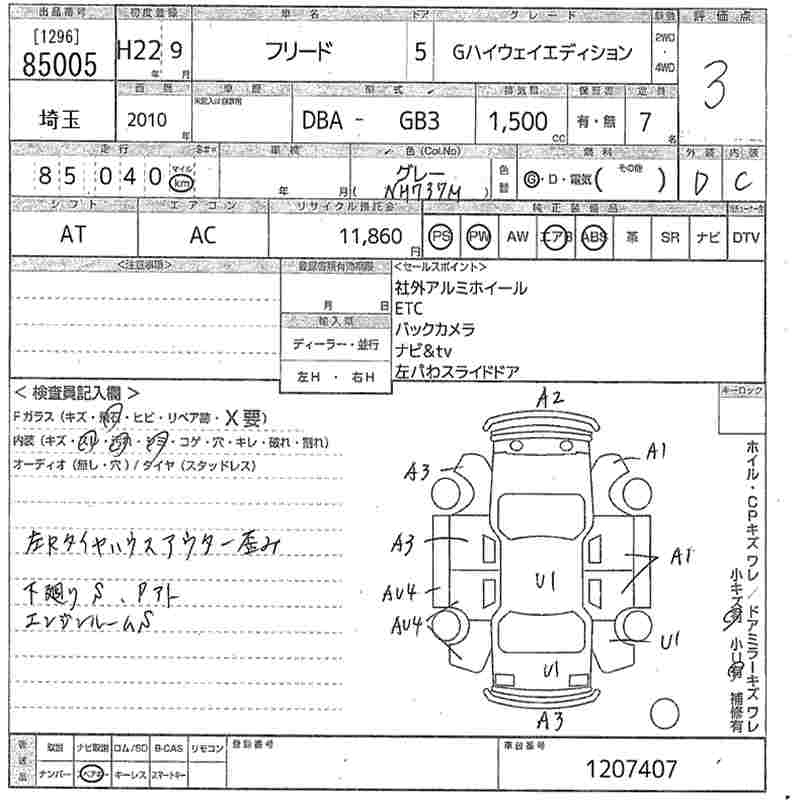 出品番号 初度登録 車名 ドア グレード 駆動 評価点
[1296]
85005 H22 9 フリード 5 Gハイウェイエディション 2WD 4WD 3
年 月
西暦 車歴 型式 排気量 保証書 定員
未記入は自家用
埼玉 2010 年 DBA - GB3 1,500 cc 有・無 7 名
走行 車検 色 (Col.No) 燃料 外装 内装
85040 マイル km 年 月 グレー (NH737M) 色替 G・D・電気( その他 ) D C
シフト エアコン リサイクル預託金 純正装備品
AT AC 11,860 円 PS PW AW エアB ABS 革 SR ナビ DTV
<注意事項> 登録書類有効期限 <セールスポイント>
月 日
社外アルミホイール
ETC
輸入車
バックカメラ
ディーラー・並行
ナビ&tv
左H ・ 右H
左パわスライドドア
< 検査員記入欄 > キーロック
Fガラス (キズ・飛石・ヒビ・リペア跡・X要)
内装 (キズ・スレ・汚れ・シミ・コゲ・穴・キレ・破れ・割れ)
オーディオ (無し・穴) / タイヤ (スタッドレス)
左Rタイヤハウスアウター歪み
下廻りS、Pアト
エンジンルームS
A2
A1
A3
A3
A1
U1
AU4
AU4
U1
U1
A3
ホイル・CPキズワレ / ドアミラーキズワレ
小キズ有 小U有 補修有
後送品 取説 ナビ取説 ロム/SD B-CAS リモコン 登録番号 車台番号
ナンバー スペアキー キーレス スマートキー 1207407